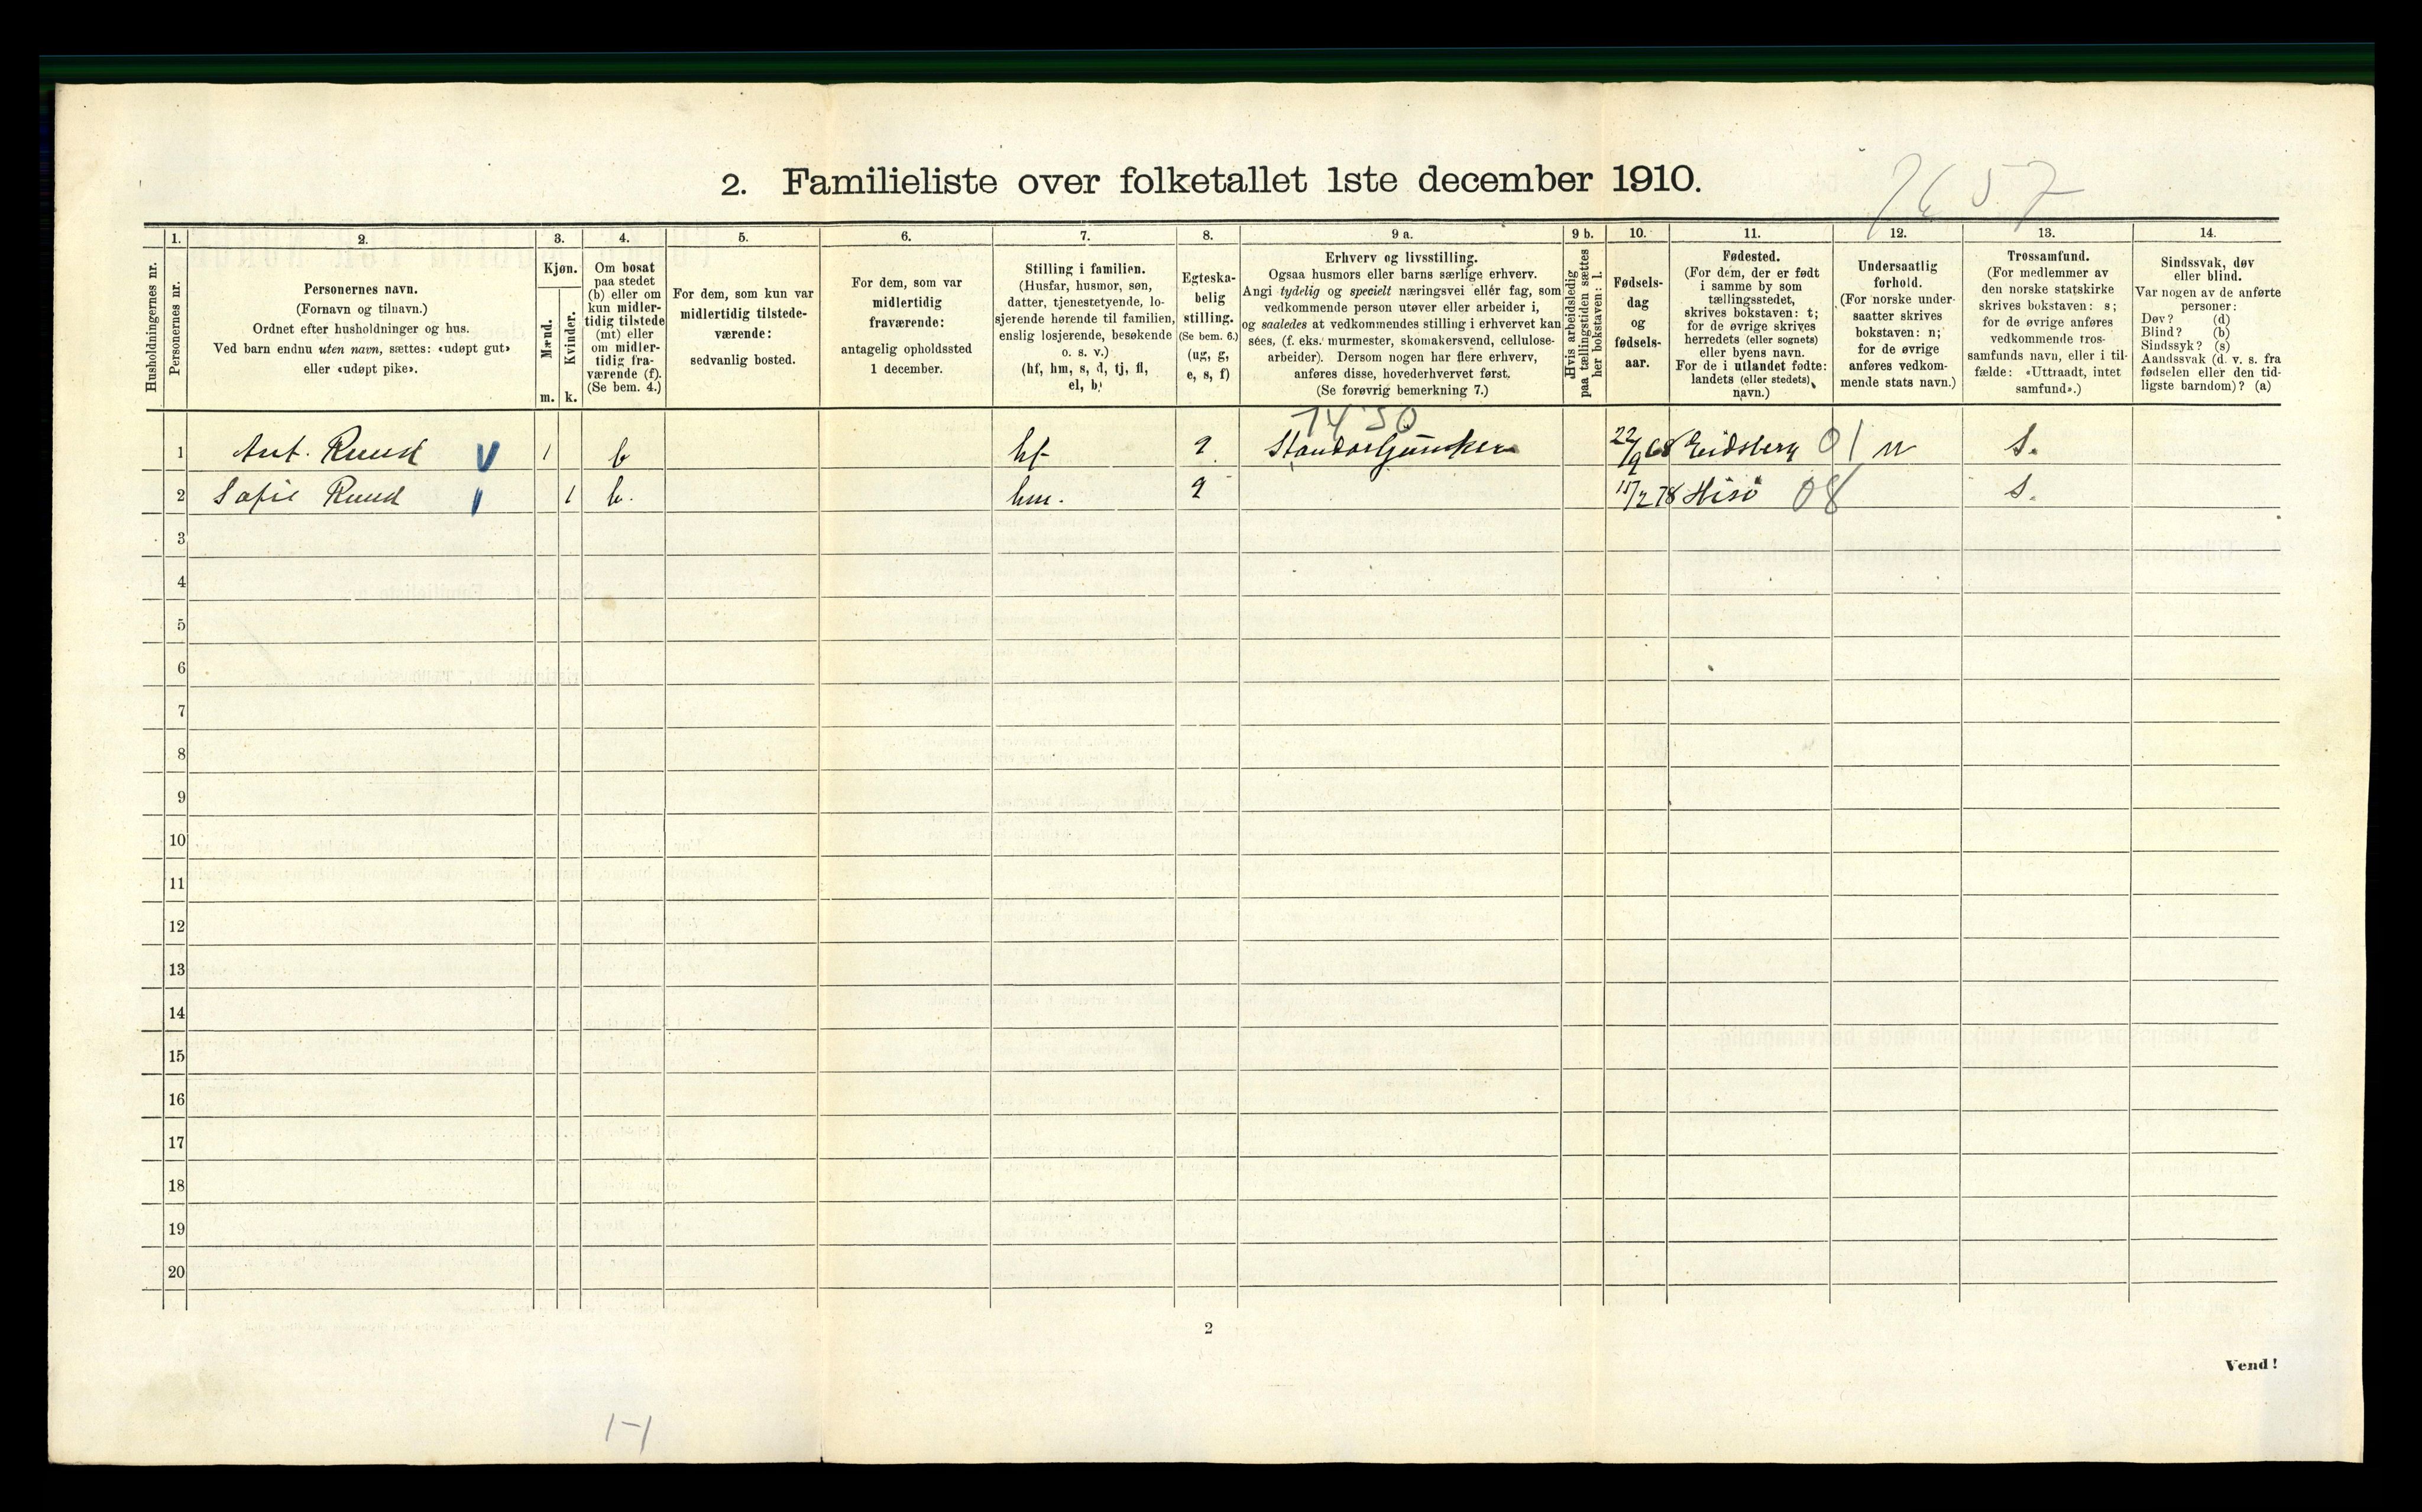 2. Familieliste over folketallet 1ste december 1910.
7657
Husholdningernes nr.
1.
Personernes nr.
2.
Personernes navn.
(Fornavn og tilnavn.)
Ordnet efter husholdninger og hus.
Ved barn endnu uten navn, sættes: «udøpt gut»
eller «udøpt pike».
3.
Kjøn.
Mænd.
Kvinder.
m. k.
4.
Om bosat
paa stedet
(b) eller om
kun midler-
tidig tilstede
(mt) eller
om midler-
tidig fra-
værende (f).
(Se bem. 4.)
5.
For dem, som kun var
midlertidig tilstede-
værende:
sedvanlig bosted.
6.
For dem, som var
midlertidig
fraværende:
antagelig opholdssted
1 december.
7.
Stilling i familien.
(Husfar, husmor, søn,
datter, tjenestetyende, lo-
sjerende hørende til familien,
enslig losjerende, besøkende
o. s. v.)
(hf, hm, s, d, tj, fl,
el, b)
8.
Egteska-
belig
stilling.
(Se bem. 6.)
(ug, g,
e, s, f)
9 a.
Erhverv og livsstilling.
Ogsaa husmors eller barns særlige erhverv.
Angi tydelig og specielt næringsvei eller fag, som
vedkommende person utøver eller arbeider i,
og saaledes at vedkommendes stilling i erhvervet kan
sees, (f. eks. murmester, skomakersvend, cellulose-
arbeider). Dersom nogen har flere erhverv,
anføres disse, hovederhvervet først.
(Se forøvrig bemerkning 7.)
9 b.
Hvis arbeidsledig
paa tællingstiden sættes
her bokstaven: l.
10.
Fødsels-
dag
og
fødsels-
aar.
11.
Fødested.
(For dem, der er født
i samme by som
tællingsstedet,
skrives bokstaven: t;
for de øvrige skrives
herredets (eller sognets)
eller byens navn.
For de i utlandet fødte:
landets (eller stedets)
navn.)
12.
Undersaatlig
forhold.
(For norske under-
saatter skrives
bokstaven: n;
for de øvrige
anføres vedkom-
mende stats navn.)
13.
Trossamfund.
(For medlemmer av
den norske statskirke
skrives bokstaven: s;
for de øvrige anføres
vedkommende tros-
samfunds navn, eller i til-
fælde: «Uttraadt, intet
samfund».)
14.
Sindssvak, døv
eller blind.
Var nogen av de anførte
personer:
Døv? (d)
Blind? (b)
Sindssyk? (s)
Aandssvak (d. v. s. fra
fødselen eller den tid-
ligste barndom)? (a)
1 Ant. Ruud V 1 b hf g 22/9 68 Eidsberg 01 n S.
2 Sofie Ruud 1 b. hm. g 15/2 78 Hisö 08 S.
3
4
5
6
7
8
9
10
11
12
13
14
15
16
17
18
19
20
2
Vend!
1-1